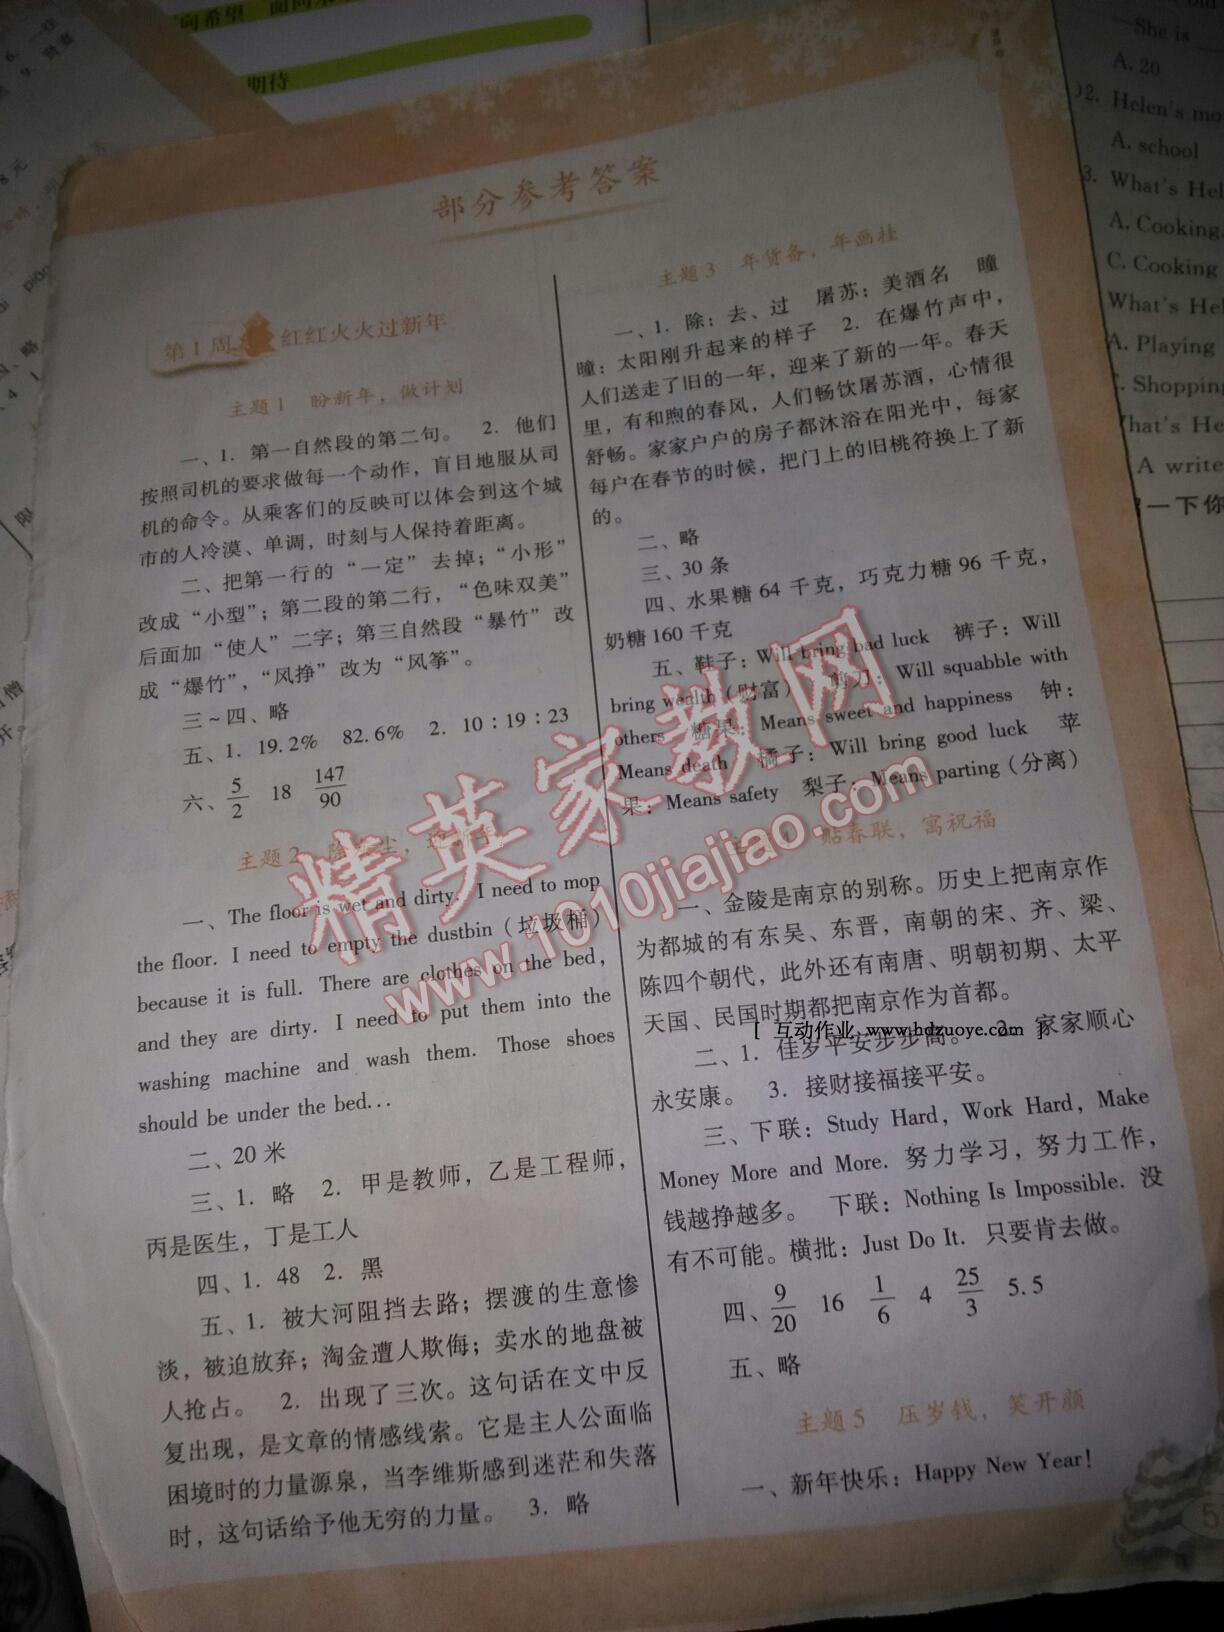 部分参考答案
第1周 红红火火过新年
主题1 盼新年，做计划
一、1. 第一自然段的第二句。 2. 他们
按照司机的要求做每一个动作，盲目地服从司
机的命令。从乘客们的反映可以体会到这个城
市的人冷漠、单调，时刻与人保持着距离。
二、把第一行的“一定”去掉；“小形”
改成“小型”；第二段的第二行，“色味双美”
后面加“使人”二字；第三自然段“暴竹”改
成“爆竹”，“风挣”改为“风筝”。
三~四、略
五、1. 19.2% 82.6% 2. 10∶19∶23
六、5/2 18 147/90
主题2 除灰尘，迎新年
一、The floor is wet and dirty. I need to mop
the floor. I need to empty the dustbin（垃圾桶）
because it is full. There are clothes on the bed,
and they are dirty. I need to put them into the
washing machine and wash them. Those shoes
should be under the bed...
二、20 米
三、1. 略 2. 甲是教师，乙是工程师，
丙是医生，丁是工人
四、1. 48 2. 黑
五、1. 被大河阻挡去路；摆渡的生意惨
淡，被迫放弃；淘金遭人欺侮；卖水的地盘被
人抢占。 2. 出现了三次。这句话在文中反
复出现，是文章的情感线索。它是主人公面临
困境时的力量源泉，当李维斯感到迷茫和失落
时，这句话给予他无穷的力量。 3. 略
主题3 年货备，年画挂
一、1. 除：去、过 屠苏：美酒名 曈
曈：太阳刚升起来的样子 2. 在爆竹声中，
人们送走了旧的一年，迎来了新的一年。春天
里，有和煦的春风，人们畅饮屠苏酒，心情很
舒畅。家家户户的房子都沐浴在阳光中，每家
每户在春节的时候，把门上的旧桃符换上了新
的。
二、略
三、30 条
四、水果糖 64 千克，巧克力糖 96 千克，
奶糖 160 千克
五、鞋子：Will bring bad luck 裤子：Will
bring wealth（财富） 剪刀：Will squabble with
others 糖果：Means sweet and happiness 钟：
Means death 橘子：Will bring good luck 苹
果：Means safety 梨子：Means parting（分离）
贴春联，寓祝福
一、金陵是南京的别称。历史上把南京作
为都城的有东吴、东晋，南朝的宋、齐、梁、
陈四个朝代，此外还有南唐、明朝初期、太平
天国、民国时期都把南京作为首都。
二、1. 佳岁平安步步高。 2. 家家顺心
永安康。 3. 接财接福接平安。
三、下联：Study Hard, Work Hard, Make
Money More and More. 努力学习，努力工作，
钱越挣越多。 下联：Nothing Is Impossible. 没
有不可能。横批：Just Do It. 只要肯去做。
四、9/20 16 1/6 4 25/3 5.5
五、略
主题5 压岁钱，笑开颜
一、新年快乐：Happy New Year!
精英家教网
www.1010jiajiao.com
[ 互动作业 www.hdzuoye.com ]
期待
—She is
A. 20
Helen's mo
A. school
What's Hel
A. Cooking
C. Cooking
What's Hel
A. Playing
C. Shopping
A write
一下你